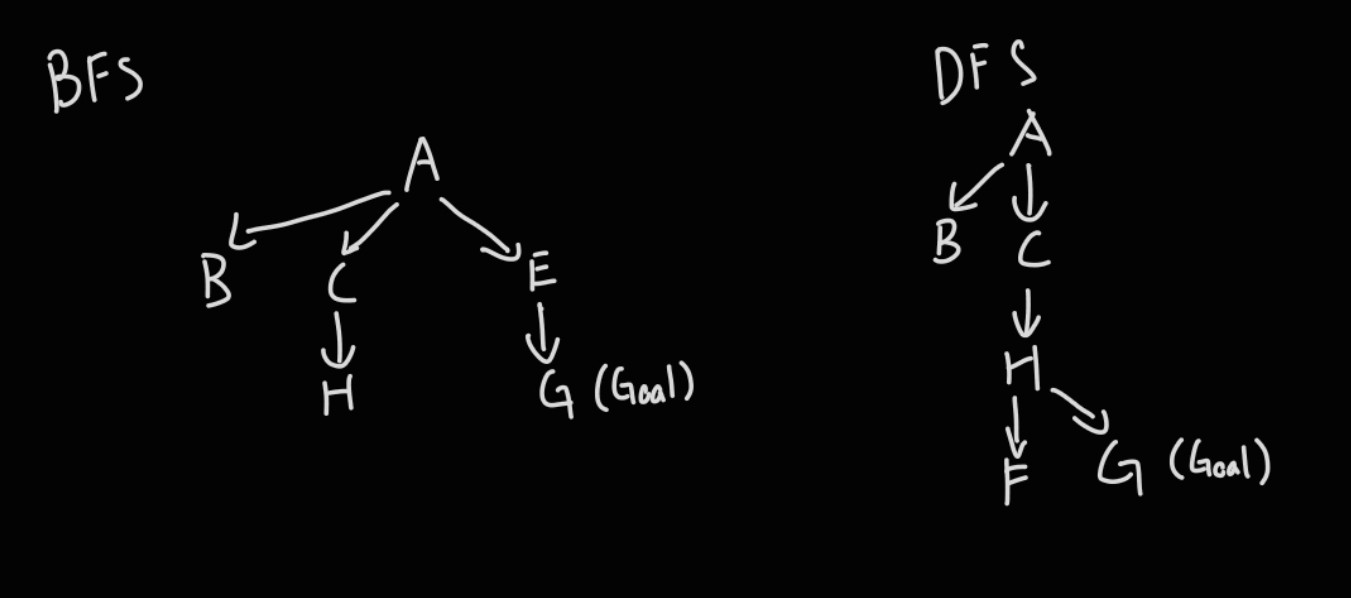 BFS
A
B C E
H G (Goal)
DFS
A
B C
H
F G (Goal)